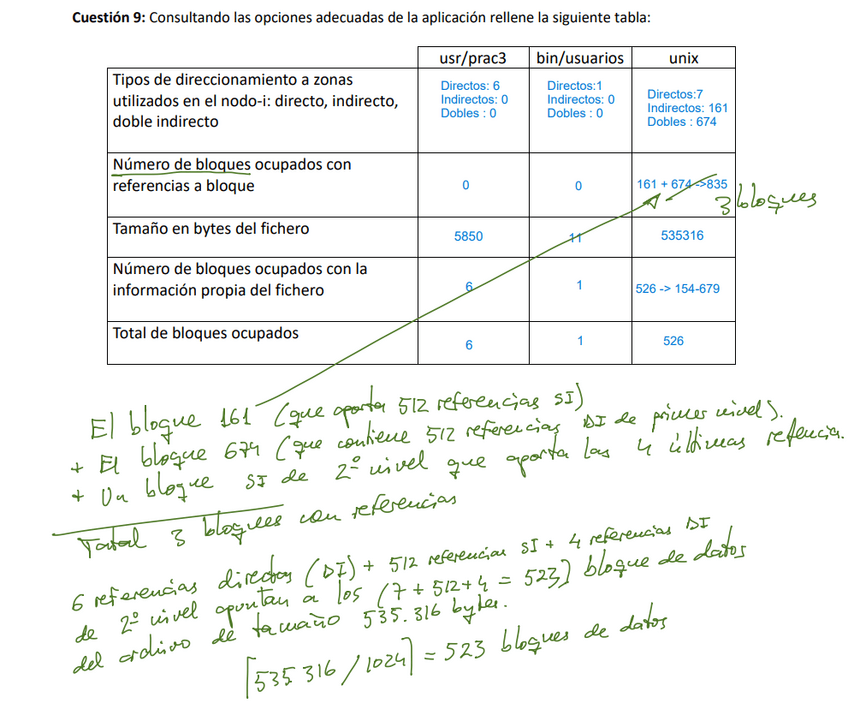 Cuestión 9: Consultando las opciones adecuadas de la aplicación rellene la siguiente tabla:
usr/prac3 bin/usuarios unix
Tipos de direccionamiento a zonas
utilizados en el nodo-i: directo, indirecto,
doble indirecto
Directos: 6
Indirectos: 0
Dobles : 0
Directos:1
Indirectos: 0
Dobles : 0
Directos:7
Indirectos: 161
Dobles : 674
Número de bloques ocupados con
referencias a bloque
0 0 161 + 674 ->835
3 bloques
Tamaño en bytes del fichero
5850 11 535316
Número de bloques ocupados con la
información propia del fichero
6 1 526 -> 154-679
Total de bloques ocupados
6 1 526
El bloque 161 (que aporta 512 referencias SI)
+ El bloque 674 (que contiene 512 referecias DI de primer nivel).
+ Un bloque SI de 2º nivel que aporta las 4 últimas refencia.
Total 3 bloques con referencias
6 referencias directas (DI) + 512 referencias SI + 4 referencias DI
de 2º nivel apuntan a los (7 + 512 + 4 = 523) bloque de datos
del archivo de tamaño 535.316 bytes.
⌈535 316 / 1024⌉ = 523 bloques de datos